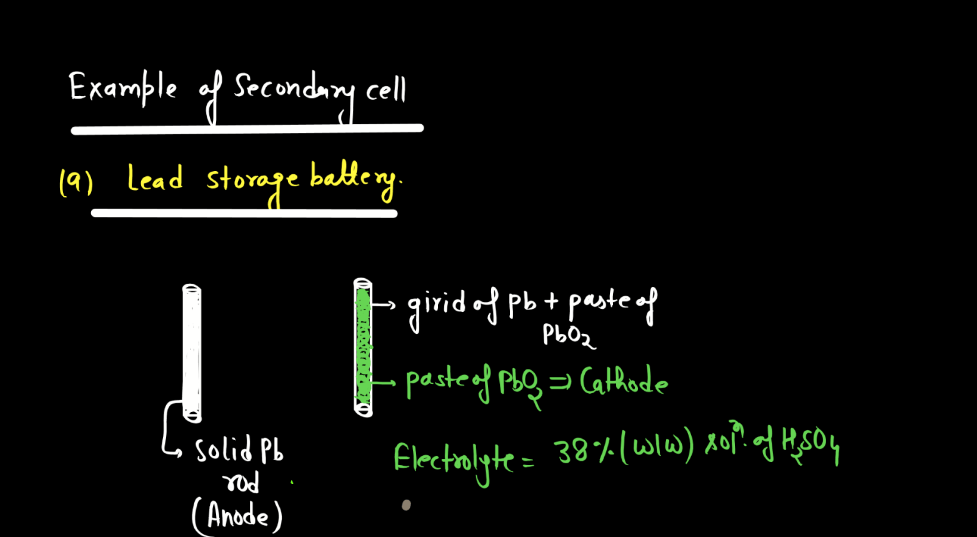 Example of Secondary cell
(a) Lead storage battery.
girid of Pb + paste of
PbO2
paste of PbO2 ⇒ Cathode
Electrolyte = 38% (w/w) solⁿ. of H2SO4
solid Pb
rod
(Anode)